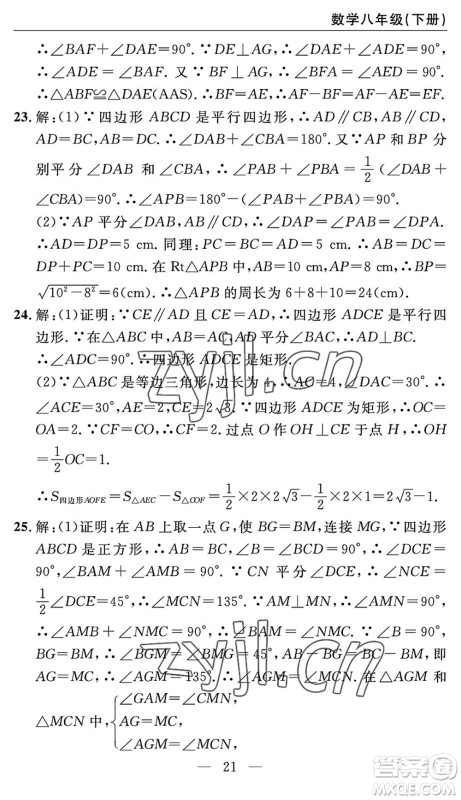 数学八年级(下册)
∴∠BAF+∠DAE=90°.∵DE⊥AG,∴∠DAE+∠ADE=90°.
∴∠ADE=∠BAF.又∵BF⊥AG,∴∠BFA=∠AED=90°.
∴△ABF≌△DAE(AAS).∴BF=AE,∴AF-BF=AF-AE=EF.
23.解:(1)∵四边形ABCD是平行四边形,∴AD∥CB,AB∥CD,
AD=BC,AB=DC.∴∠DAB+∠CBA=180°.又∵AP和BP分
别平分∠DAB和∠CBA,∴∠PAB+∠PBA=1/2(∠DAB+
∠CBA)=90°.∴∠APB=180°-(∠PAB+∠PBA)=90°.
(2)∵AP平分∠DAB,AB∥CD,∴∠DAP=∠PAB=∠DPA.
∴AD=DP=5 cm.同理:PC=BC=AD=5 cm.∴AB=DC=
DP+PC=10 cm.在Rt△APB中,AB=10 cm,AP=8 cm,∴BP=
√(10²-8²)=6(cm).∴△APB的周长为6+8+10=24(cm).
24.解:(1)证明:∵CE∥AD且CE=AD,∴四边形ADCE是平行四
边形.∵在△ABC中,AB=AC,AD平分∠BAC,∴AD⊥BC.
∴∠ADC=90°.∴四边形ADCE是矩形.
(2)∵△ABC是等边三角形,边长为4,∴AC=4,∠DAC=30°.
∴∠ACE=30°,AE=2,CE=2√3.∵四边形ADCE为矩形,∴OC=
OA=2.∵CF=CO,∴CF=2.过点O作OH⊥CE于点H,∴OH=
1/2OC=1.
∴S四边形AOFE=S△AEC-S△COF=1/2×2×2√3-1/2×2×1=2√3-1.
25.解:(1)证明:在AB上取一点G,使BG=BM,连接MG,∵四边形
ABCD是正方形,∴∠B=∠DCE=90°.∵CN平分∠DCE,∴∠NCE=
1/2∠DCE=45°,∴∠MCN=135°.∵MN⊥AM,∴∠AMN=90°,
∴∠AMB+∠NMC=90°,∴∠BAM=∠NMC.∵∠B=90°,
BG=BM,∴∠BGM=∠BMG=45°,AB-BG=BC-BM,即
AG=MC,∴∠AGM=135°.∴∠AGM=∠MCN.在△AGM和
△MCN中,{∠GAM=∠CMN,
AG=MC,
∠AGM=∠MCN,
21
zyjl.cn
zyjl.cn
作业精灵
答案圈
MXQE.COM